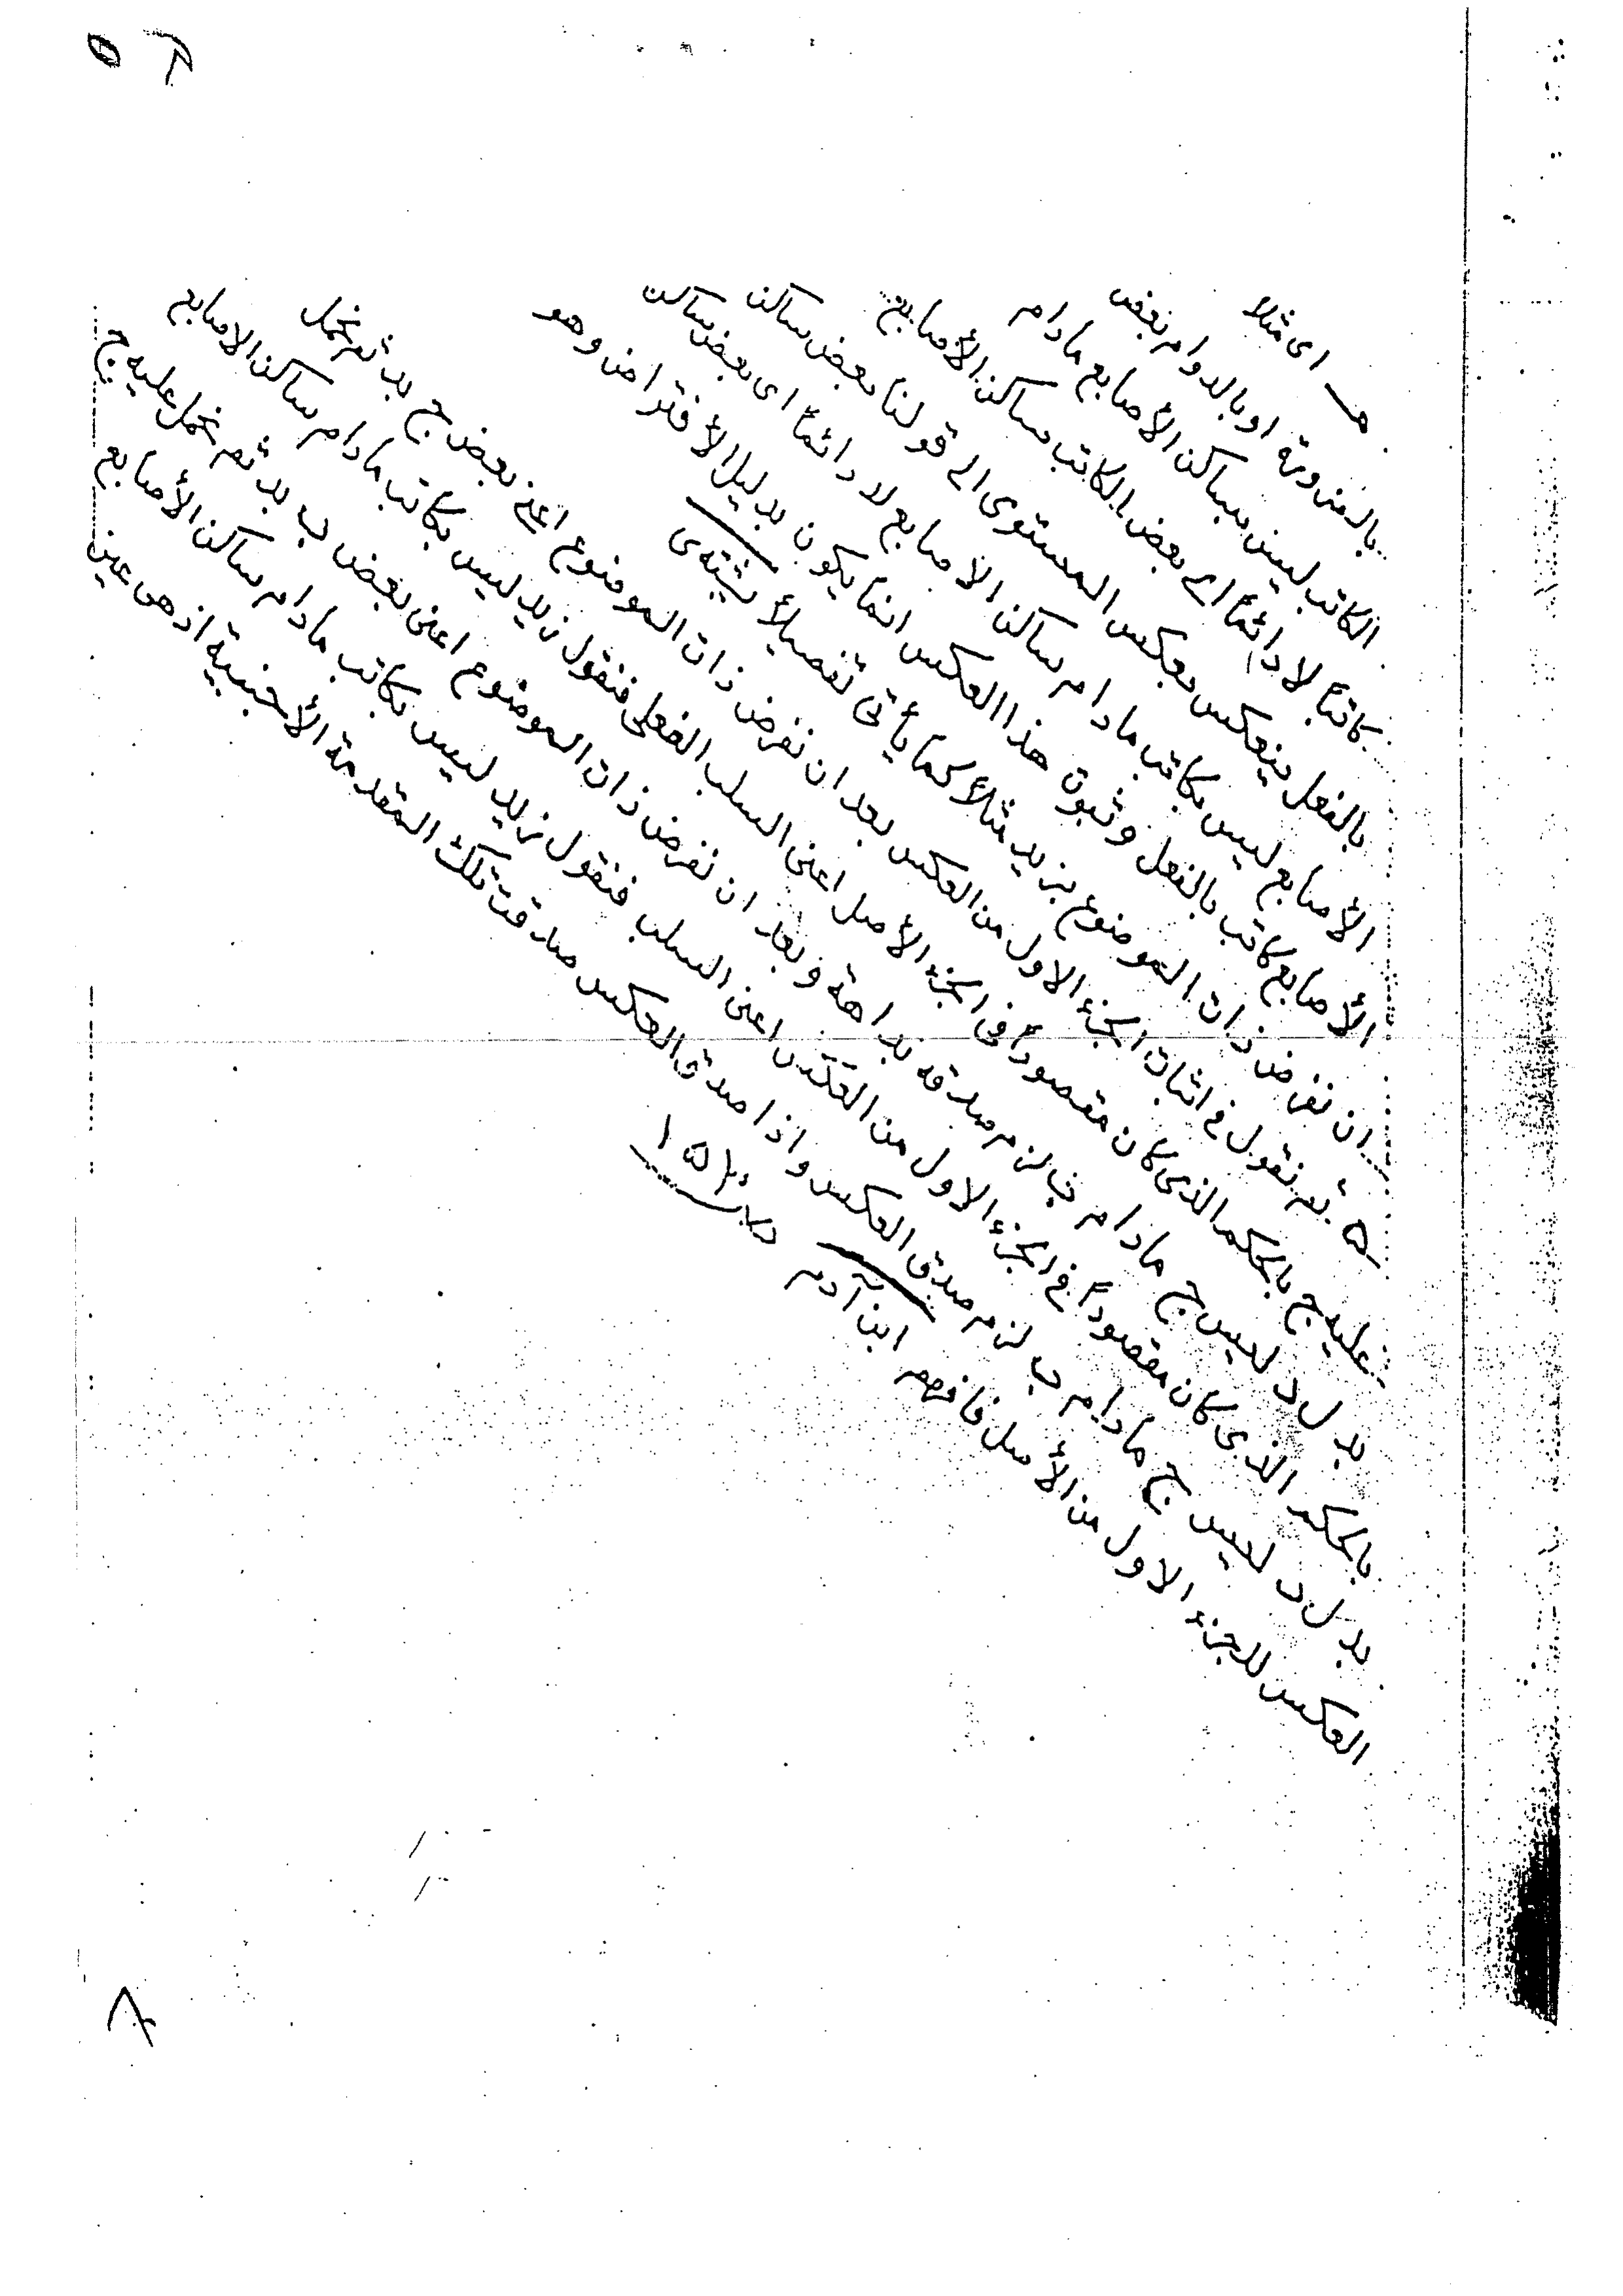 اى مثلا
بالضرورة او بالدوام بعض
الكاتب ليس بساكن الأصابع مادام
كاتباً لا دائماً اى بعض الكاتب ساكن الأصابع
بالفعل ينعكس بعكس المستوى الى قولنا بعض ساكن
الأصابع ليس بكاتب مادام ساكن الأصابع لا دائماً اى بعض ساكن
الأصابع كاتب بالفعل وثبوت هذا العكس انما يكون بدليل الأفتراض وهو
ان نفرض ذات الموضوع بزيد مثلاً كما يأتى تفصيلاً
ثم نقول فى اثبات الجزء الاول من العكس بعد ان نفرض ذات الموضوع اعنى بعض ج بد ثم نحمل
عليه ج بالحكم الذى كان مقصوداً فى الجزء الأصل اعنى السلب الفعلى فنقول زيد ليس بكاتب مادام ساكن الاصابع
بدل د ليس ج مادام ب لزم صدقه بداهة وبعد ان نفرض ذات الموضوع اعنى بعض ب بد ثم نحمل عليه ج
بالحكم الذى كان مقصوداً فى الجزء الاول من العكس اعنى السلب فنقول زيد ليس بكاتب مادام ساكن الأصابع
بدل د ليس ج مادام ب لزم صدق العكس واذا صدق العكس صدقت تلك المقدمة الأجنبية اذ هى عين
العكس للجزء الاول من الأصل فافهم ابن آدم
٨